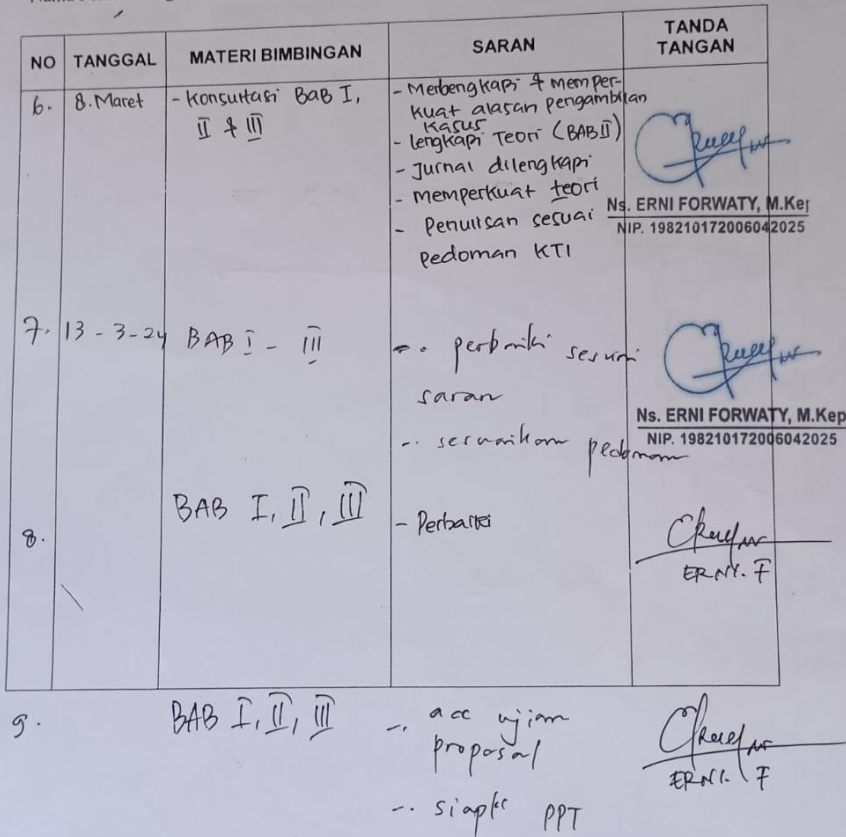 NO TANGGAL MATERI BIMBINGAN SARAN TANDA TANGAN
6. 8. Maret - Konsultasi BAB I, II & III
- Melengkapi & memper-
kuat alasan pengambilan
kasus
- lengkapi Teori (BAB II)
- Jurnal dilengkapi
- memperkuat teori
- Penulisan sesuai
pedoman KTI
Ns. ERNI FORWATY, M.Kep
NIP. 198210172006042025
7. 13-3-24 BAB I - III
- perbaiki sesuai
saran
- sesuaikan pedoman
Ns. ERNI FORWATY, M.Kep
NIP. 198210172006042025
8. BAB I, II, III - Perbaiki
ERNY. F
9. BAB I, II, III - acc ujian
proposal
- siapkan PPT
ERNI. F